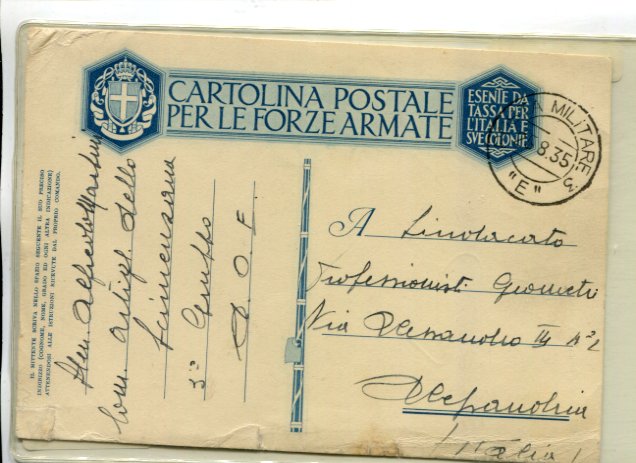 CARTOLINA POSTALE
PER LE FORZE ARMATE
ESENTE DA
TASSA PER
L'ITALIA E
SVE COLONIE
MILITARE
8.35
"E"
IL MITTENTE SCRIVA NELLO SPAZIO SEGUENTE IL SUO PRECISO
INDIRIZZO (COGNOME, NOME, GRADO ED OGNI ALTRA INDICAZIONE)
ATTENENDOSI ALLE ISTRUZIONI RICEVUTE DAL PROPRIO COMANDO.
Alfredo Martini
Com. Artigl. dello
3° Gruppo
A.O.E
A Sindacato
Professionisti Geometri
Via Alessandro III N° 2
Alessandria
Italia